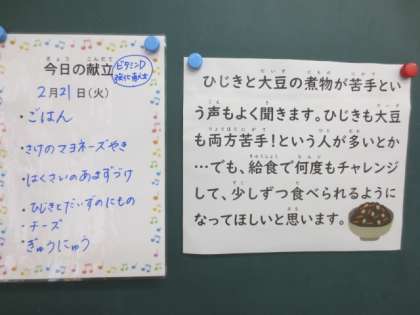 今日の献立
ビタミンD
強化献立
2月21日(火)
・ごはん
・さけのマヨネーズやき
・はくさいのあさづけ
・ひじきとだいずのにもの
・チーズ
・ぎゅうにゅう
ひじきと大豆の煮物が苦手とい
う声もよく聞きます。ひじきも大豆
も両方苦手!という人が多いとか
…でも、給食で何度もチャレンジ
して、少しずつ食べられるように
なってほしいと思います。